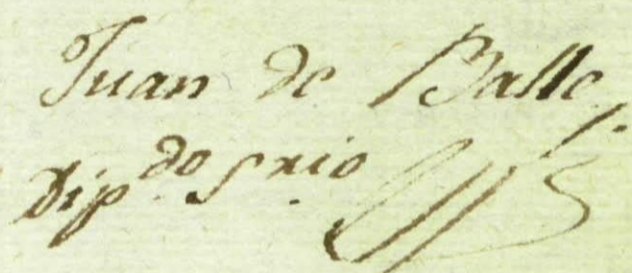 Juan de Balle
Dip.do S.rio